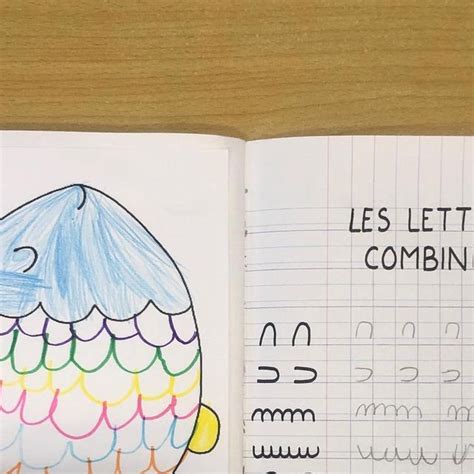 LES LETT
COMBIN